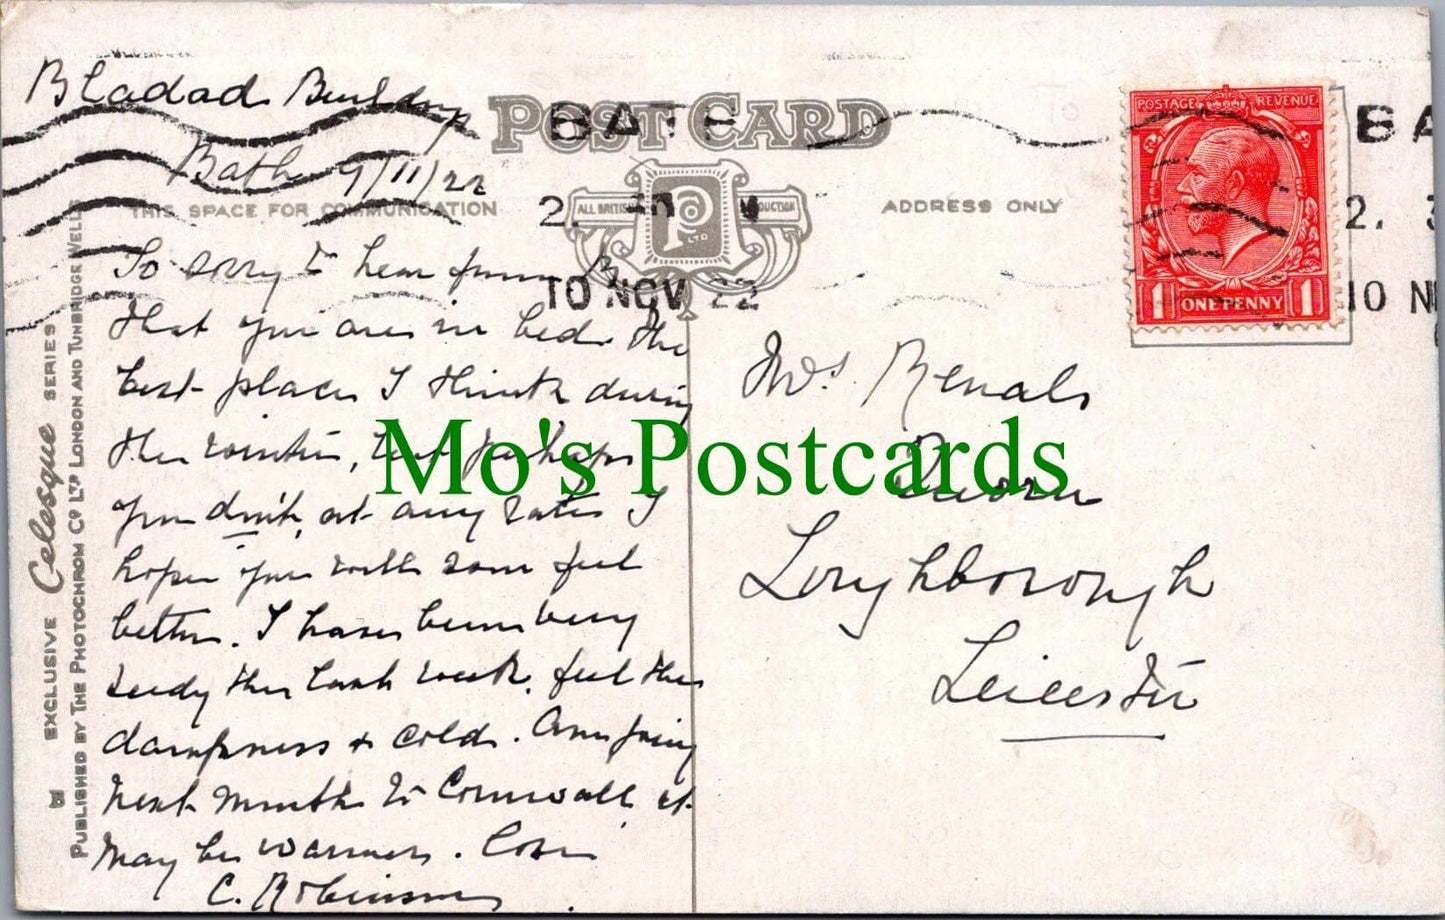 Bladad Buildings
Bath 9/11/22
POST CARD
BATH
THIS SPACE FOR COMMUNICATION
ADDRESS ONLY
ALL BRITISH PRODUCTION
P LTD
10 NOV 22
POSTAGE REVENUE
1 ONE PENNY 1
BA
2. 3
10 N
So sorry to hear from
that you are in bed. the
best place I think during
the winter, but perhaps
you don't, at any rate I
hope you will soon feel
better. I have been very
seedy this last week, feel the
dampness & cold. Am going
next month to Cornwall it
may be warmer. Love
C. Robinson
Mrs. Renals
Quorn
Loughborough
Leicester
Mo's Postcards
EXCLUSIVE Celesque SERIES
PUBLISHED BY THE PHOTOCHROM CO LTD LONDON AND TUNBRIDGE WELLS